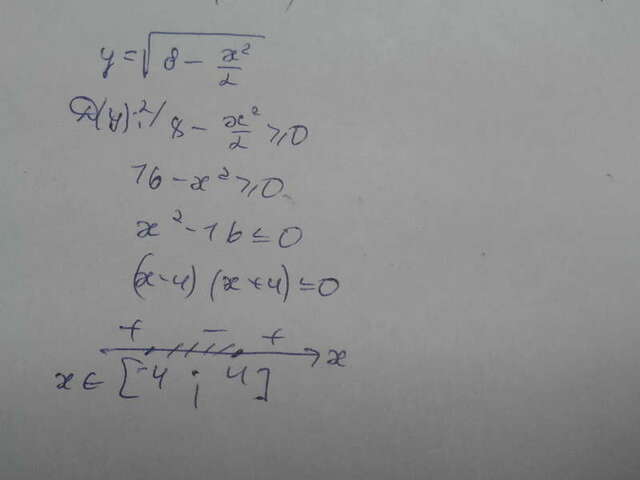 y = √(8 - x²/2)
D(y): 2/ 8 - x²/2 ≥ 0
16 - x² ≥ 0
x² - 16 ≤ 0
(x-4) (x+4) ≤ 0
+ - + x
x ∈ [-4 ; 4]